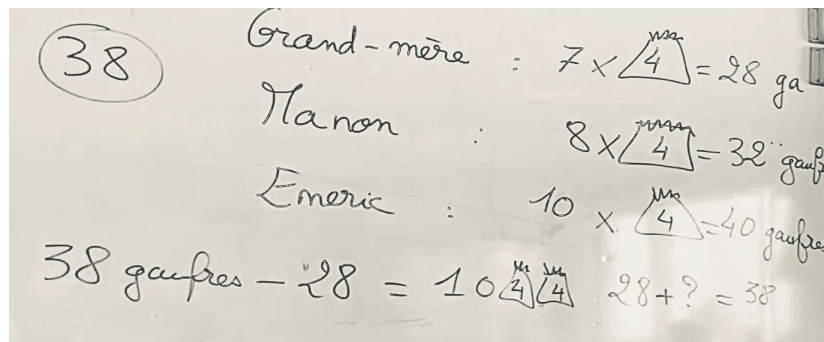 38
Grand-mère : 7 × 4 = 28 ga
Manon : 8 × 4 = 32 gaufr
Emeric : 10 × 4 = 40 gaufres
38 gaufres - 28 = 10 4 4 28 + ? = 38